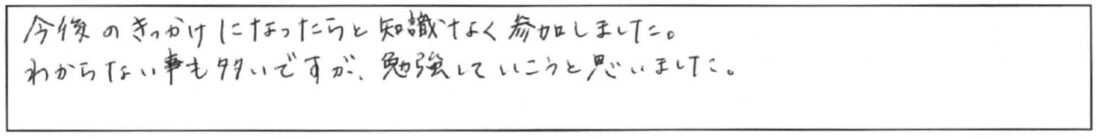 今後のきっかけになったらと知識なく参加しました。
わからない事も多いですが、勉強していこうと思いました。